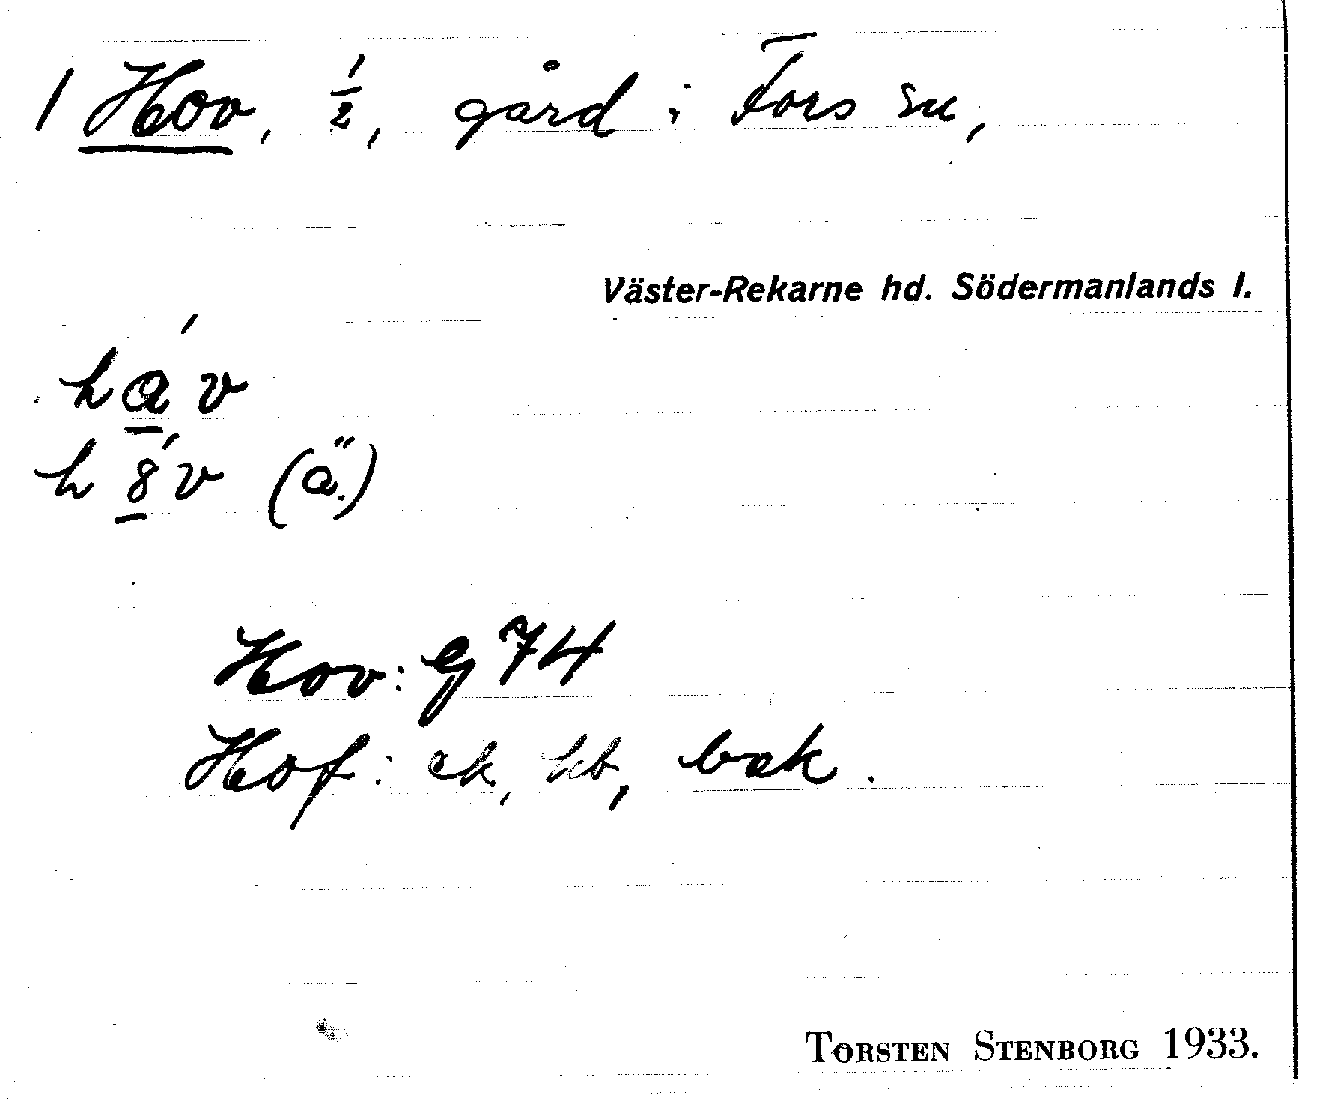 1 Hov, 1/2, gård i Fors sn,
Väster-Rekarne hd. Södermanlands l.
ha̲´v
h8̲´v (ä.)
Hov: G 74
Hof: ek, kb, bak.
TORSTEN STENBORG 1933.